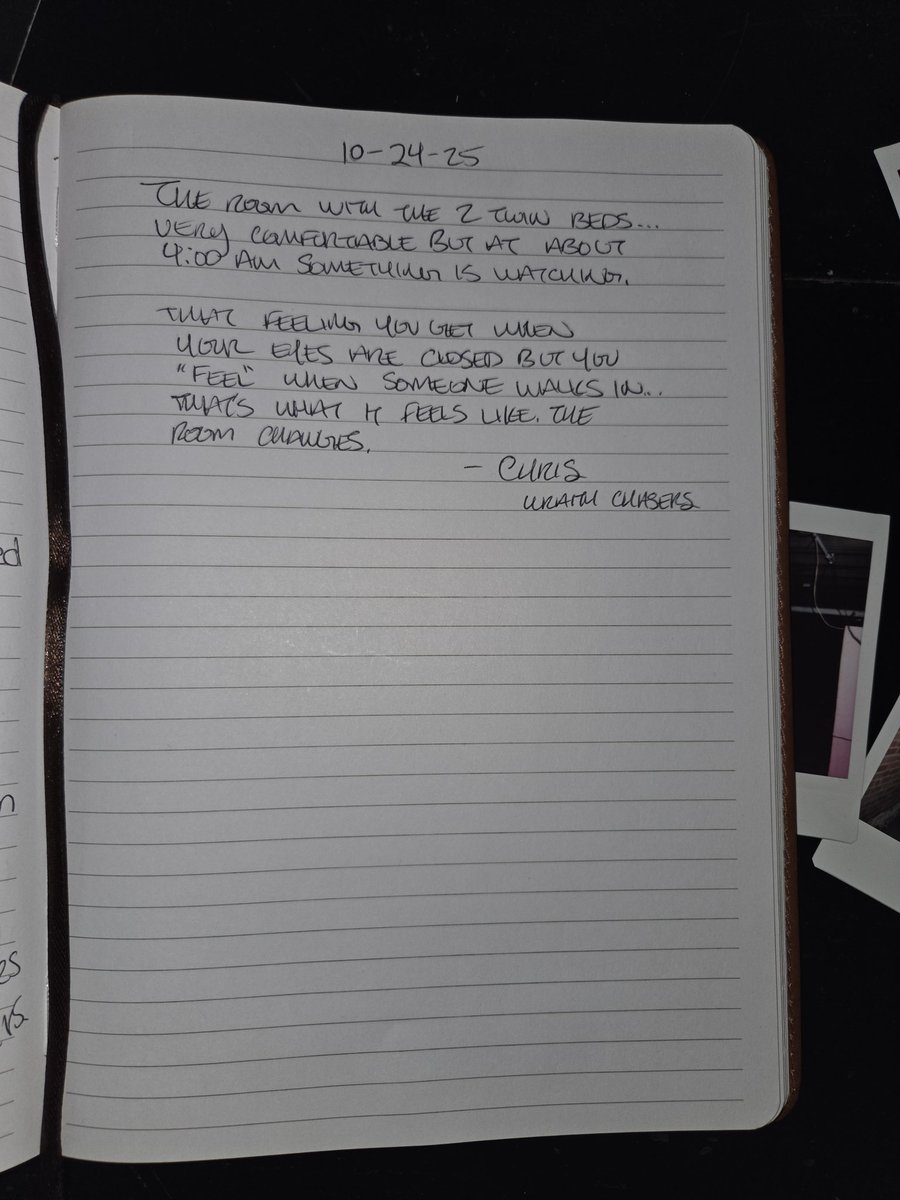 10-24-25
THE ROOM WITH THE 2 TWIN BEDS...
VERY COMFORTABLE BUT AT ABOUT
4:00 AM SOMETHING IS WATCHING.
THAT FEELING YOU GET WHEN
YOUR EYES ARE CLOSED BUT YOU
"FEEL" WHEN SOMEONE WALKS IN...
THAT'S WHAT IT FEELS LIKE. THE
ROOM CHANGES.
- CHRIS
WRAITH CHASERS